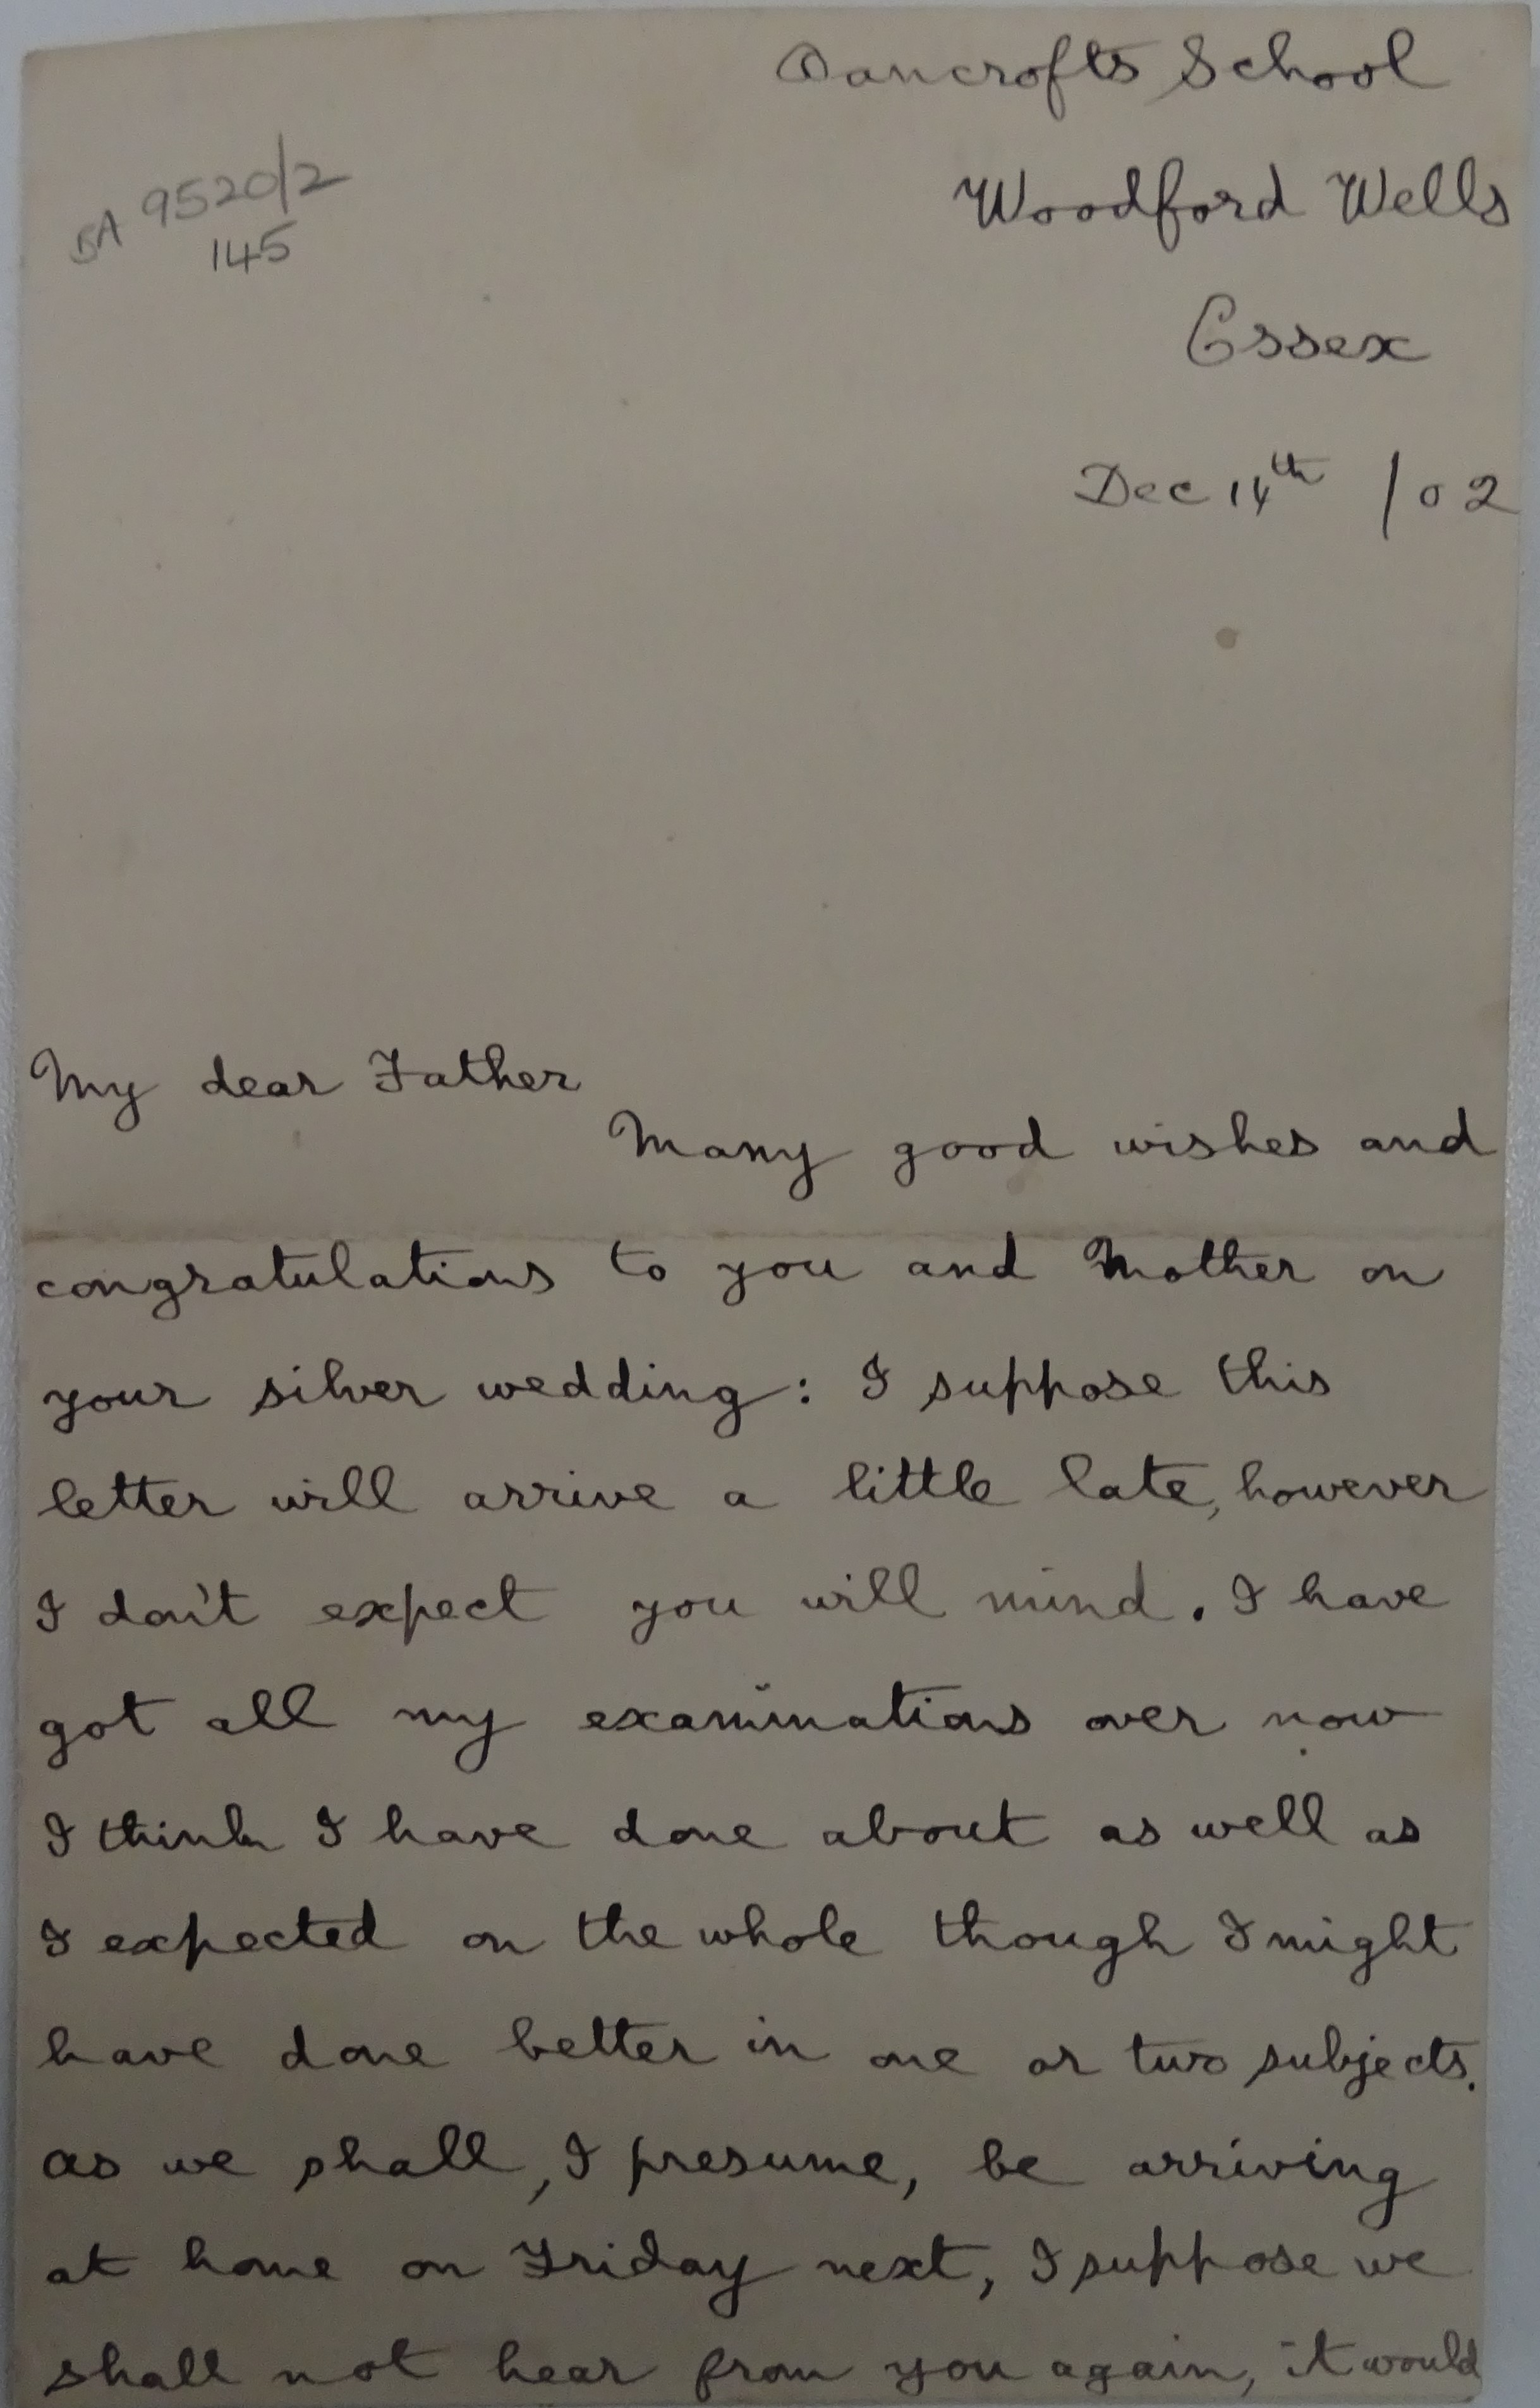 Bancrofts School
BA 9520/2
145
Woodford Wells
Essex
Dec 14th /02
My dear Father
Many good wishes and
congratulations to you and Mother on
your silver wedding: I suppose this
letter will arrive a little late, however
I don't expect you will mind. I have
got all my examinations over now
I think I have done about as well as
I expected on the whole though I might
have done better in one or two subjects.
As we shall, I presume, be arriving
at home on Friday next, I suppose we
shall not hear from you again, it would